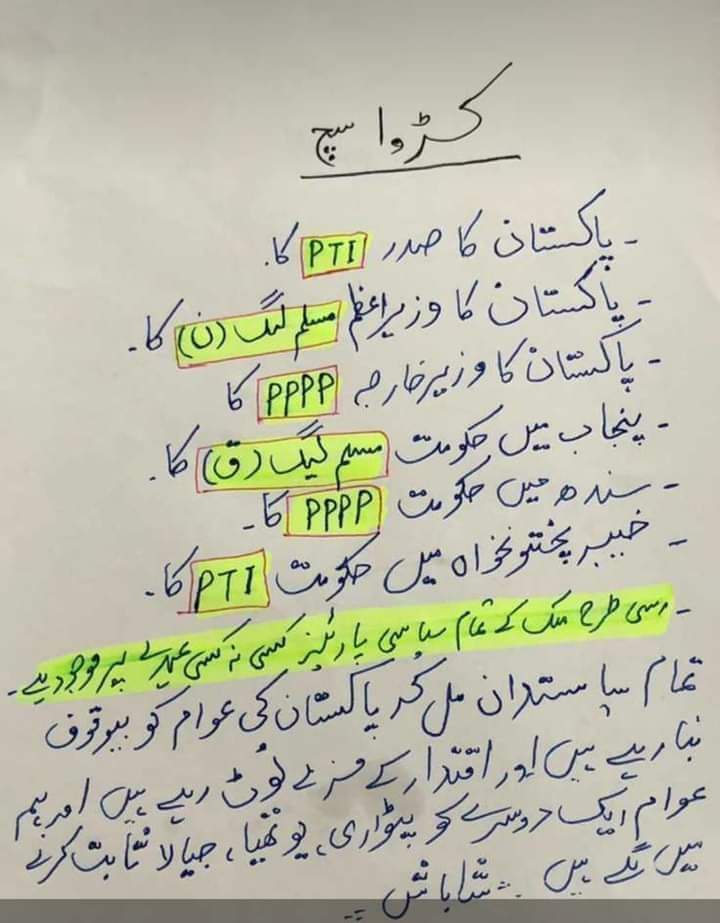 کڑوا سچ
- پاکستان کا صدر PTI کا.
- پاکستان کا وزیراعظم مسلم لیگ (ن) کا-
- پاکستان کا وزیر خارجہ PPPP کا
- پنجاب میں حکومت مسلم لیگ (ق) کا.
- سندھ میں حکومت PPPP کا-
- خیبر پختونخواہ میں حکومت PTI کا.
- اسی طرح ملک کے تمام سیاسی پارٹیز کسی نہ کسی عہدے پر موجود ہے-
تمام سیاستدان مل کر پاکستان کی عوام کو بیوقوف
بنا رہے ہیں اور اقتدار کے مزے لوٹ رہے ہیں اور ہم
عوام ایک دوسرے کو پٹواری، یوتھیا، جیالا ثابت کرنے
میں لگے ہیں - شاباش --